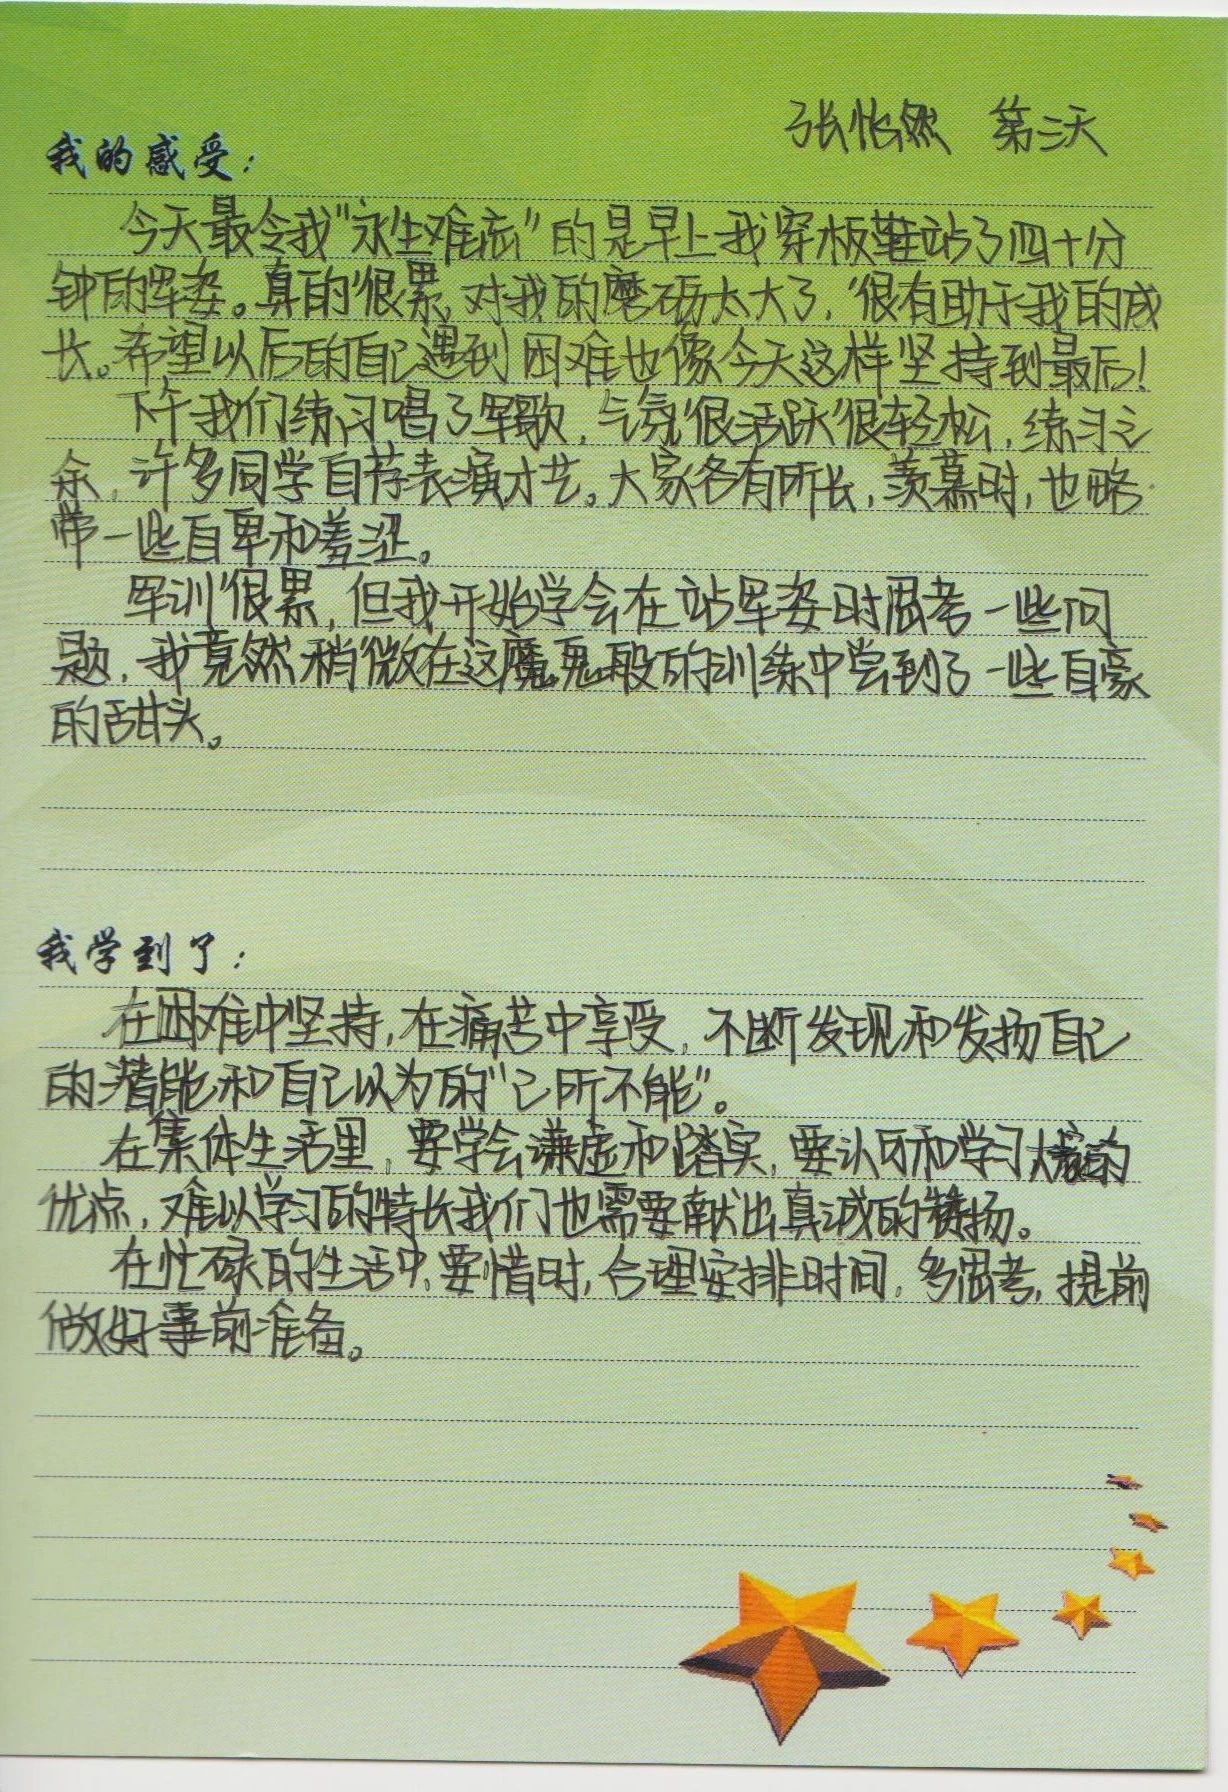 张怡然 第三天
我的感受：
今天最令我"永生难忘"的是早上我穿板鞋站了四十分
钟的军姿。真的很累，对我的磨砺太大了，很有助于我的成
长。希望以后的自己遇到困难也像今天这样坚持到最后！
下午我们练习唱了军歌，气氛很活跃很轻松，练习之
余，许多同学自荐表演才艺。大家各有所长，羡慕时，也略
带一些自卑和羞涩。
军训很累，但我开始学会在站军姿时思考一些问
题，我竟然稍微在这魔鬼般的训练中尝到了一些自豪
的甜头。
我学到了：
在困难中坚持，在痛苦中享受，不断发现和发扬自己
的潜能和自己以为的"己所不能"。
在集体生活里，要学会谦虚和踏实，要认可和学习大家的
优点，难以学习的特长我们也需要献出真诚的赞扬。
在忙碌的生活中，要惜时，合理安排时间，多思考，提前
做好事前准备。